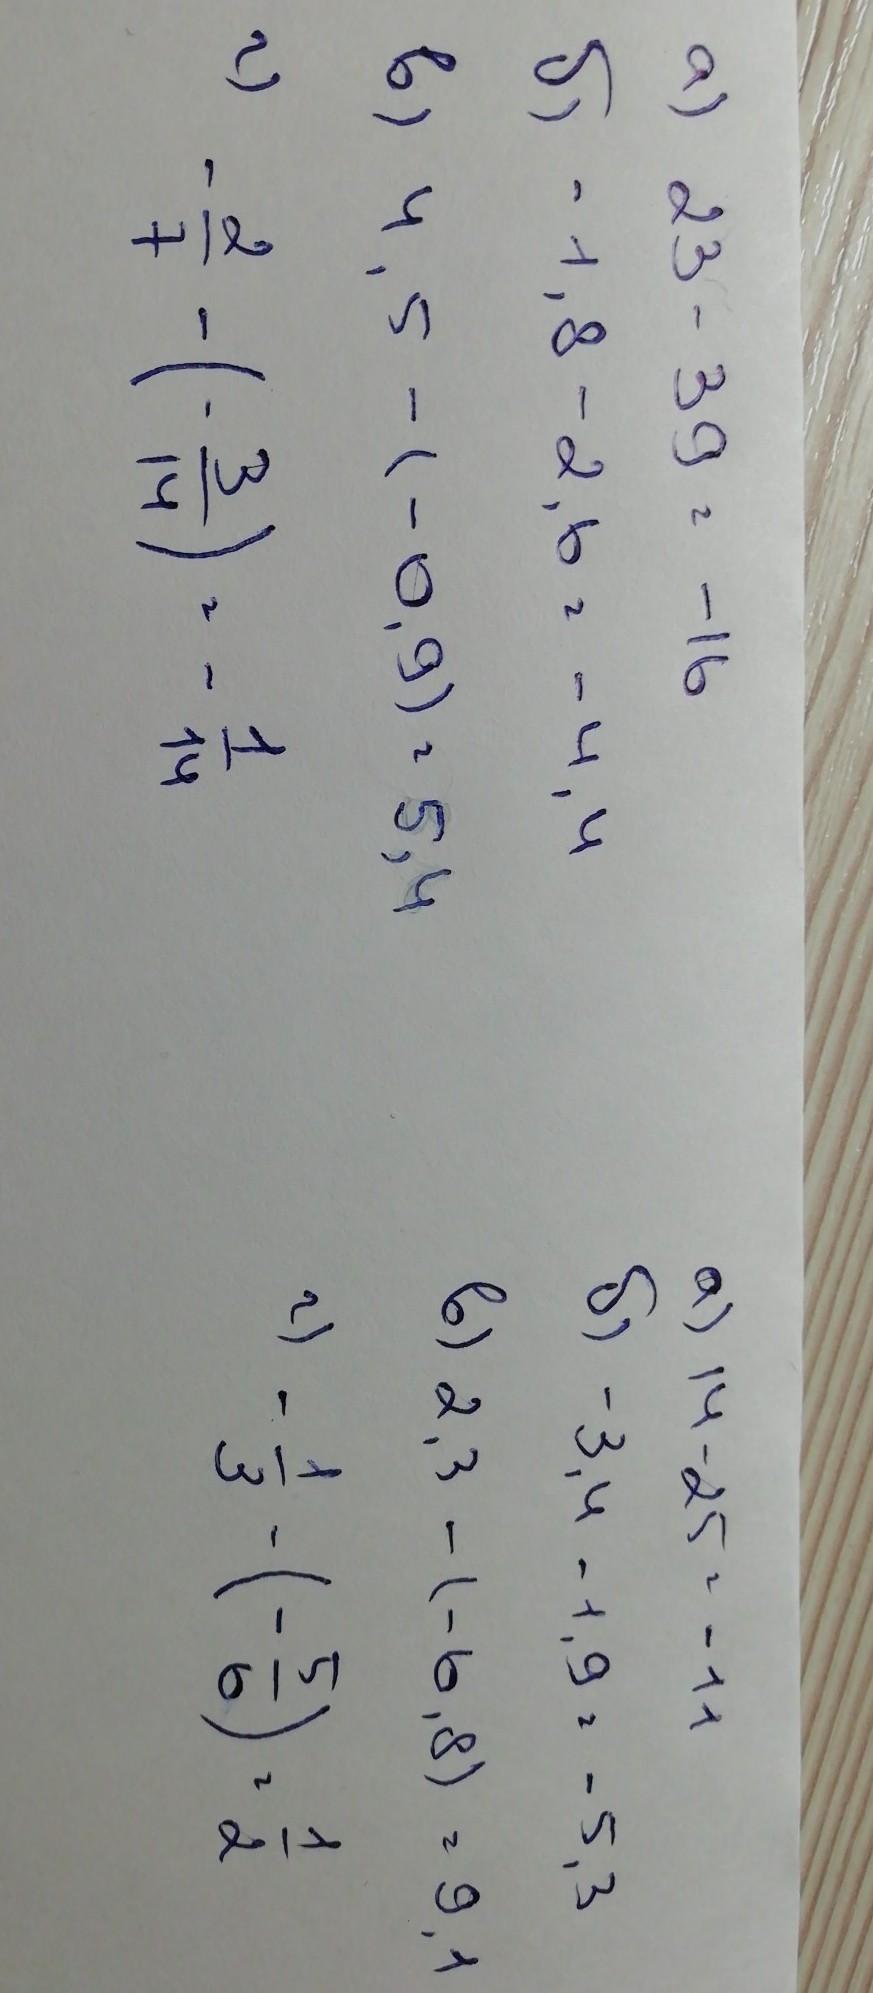 а) 23 - 39 = -16
б) -1,8 - 2,6 = -4,4
в) 4,5 - (-0,9) = 5,4
г) -2/7 - (-3/14) = -1/14
а) 14 - 25 = -11
б) -3,4 - 1,9 = -5,3
в) 2,3 - (-6,8) = 9,1
г) -1/3 - (-5/6) = 1/2